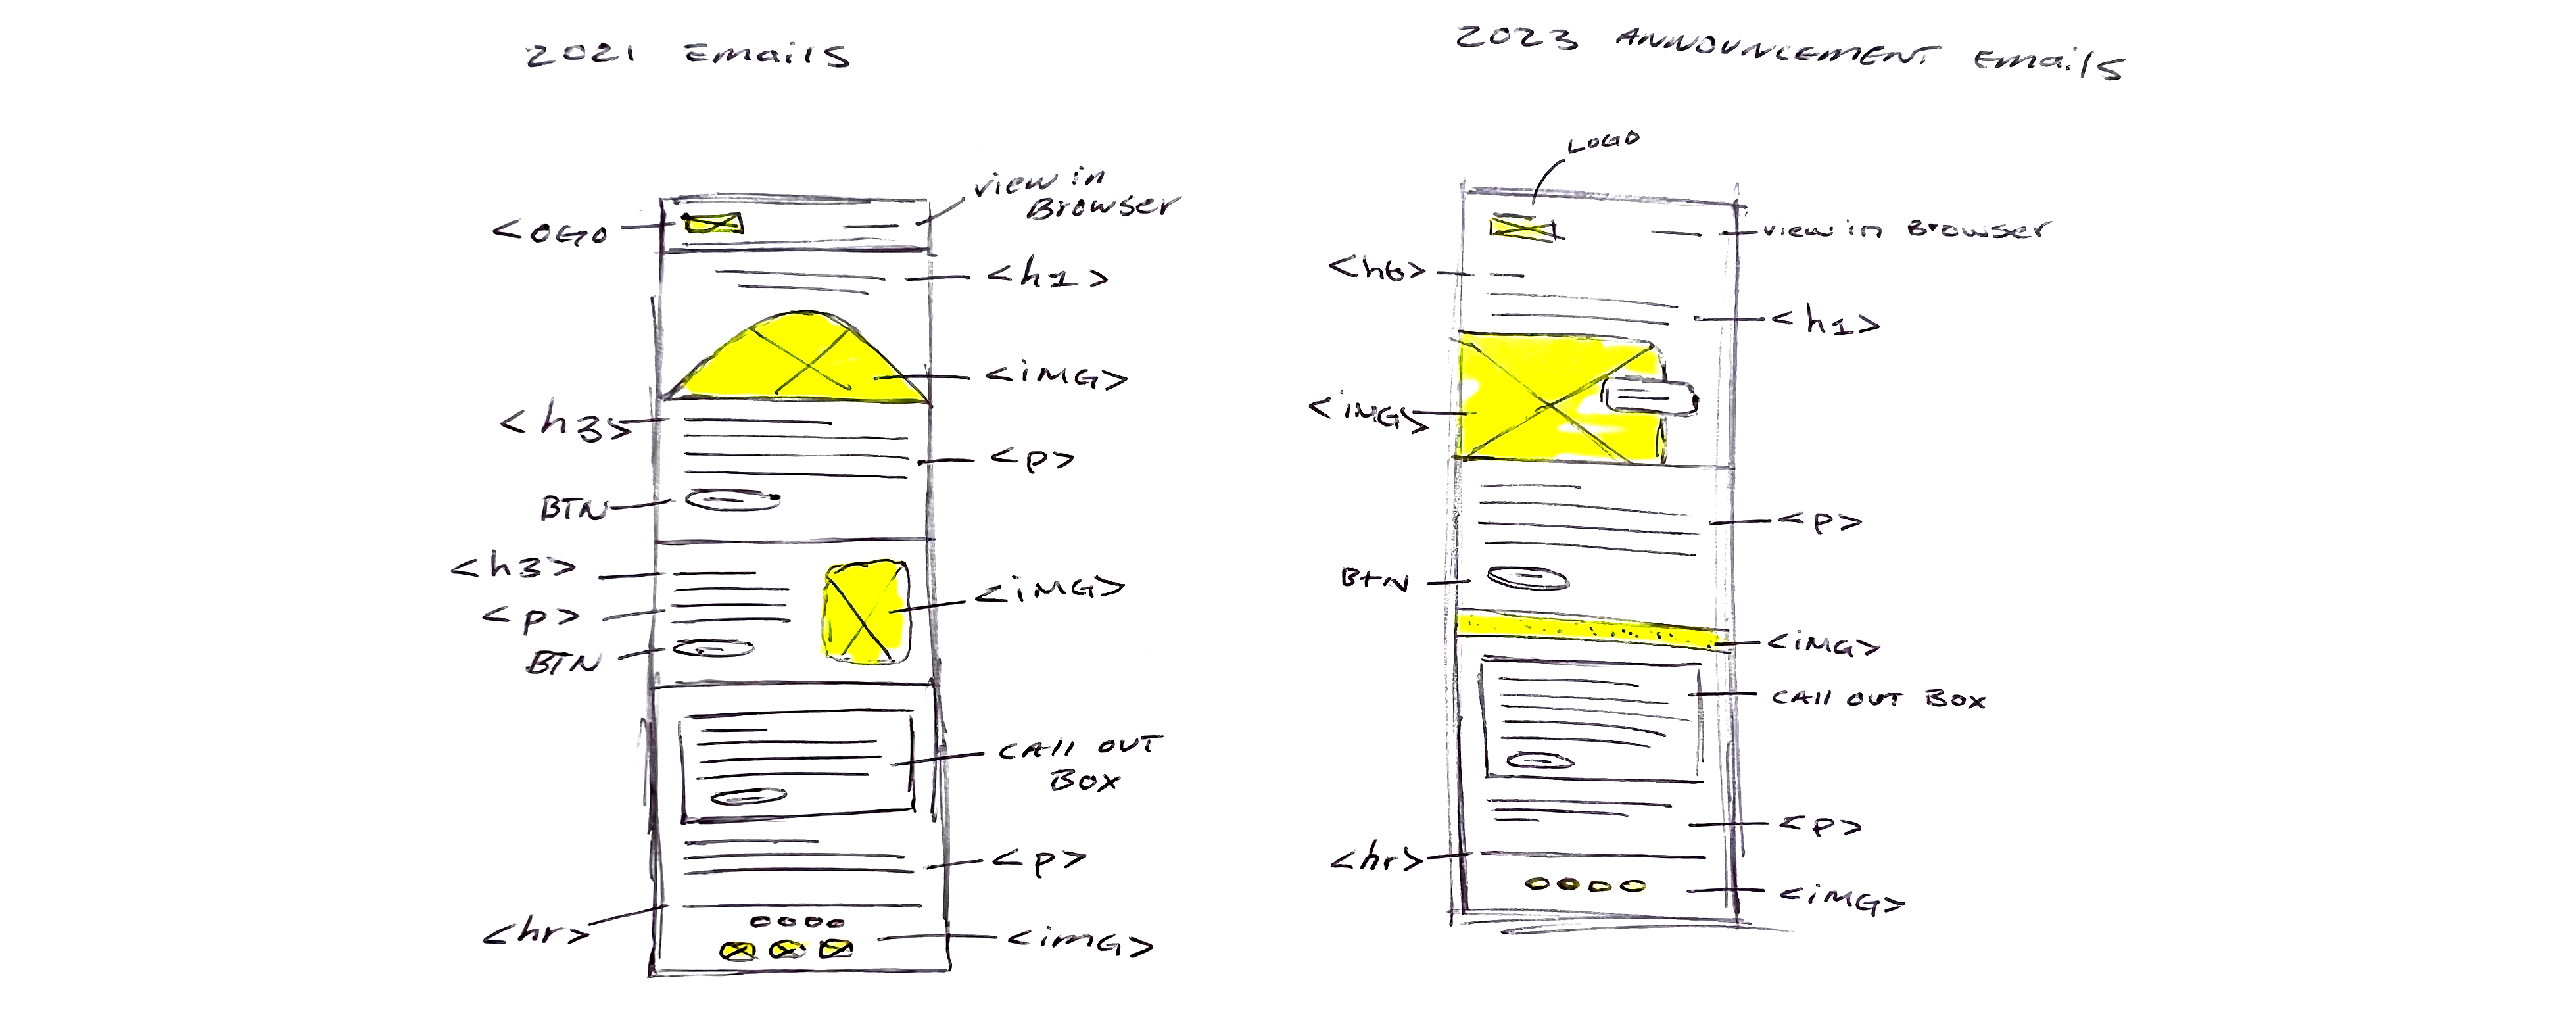 2021 Emails
LOGO
view in
Browser
<h1>
<iMG>
<h3>
<p>
BTN
<h3>
<p>
BTN
<iMG>
CAll OUT
BOX
<p>
<hr>
<imG>
2023 ANNOUNCEMENT Emails
LOGO
view in Browser
<h6>
<h1>
<iMG>
<p>
BTN
<iMG>
CAll OUT BOX
<p>
<hr>
<iMG>